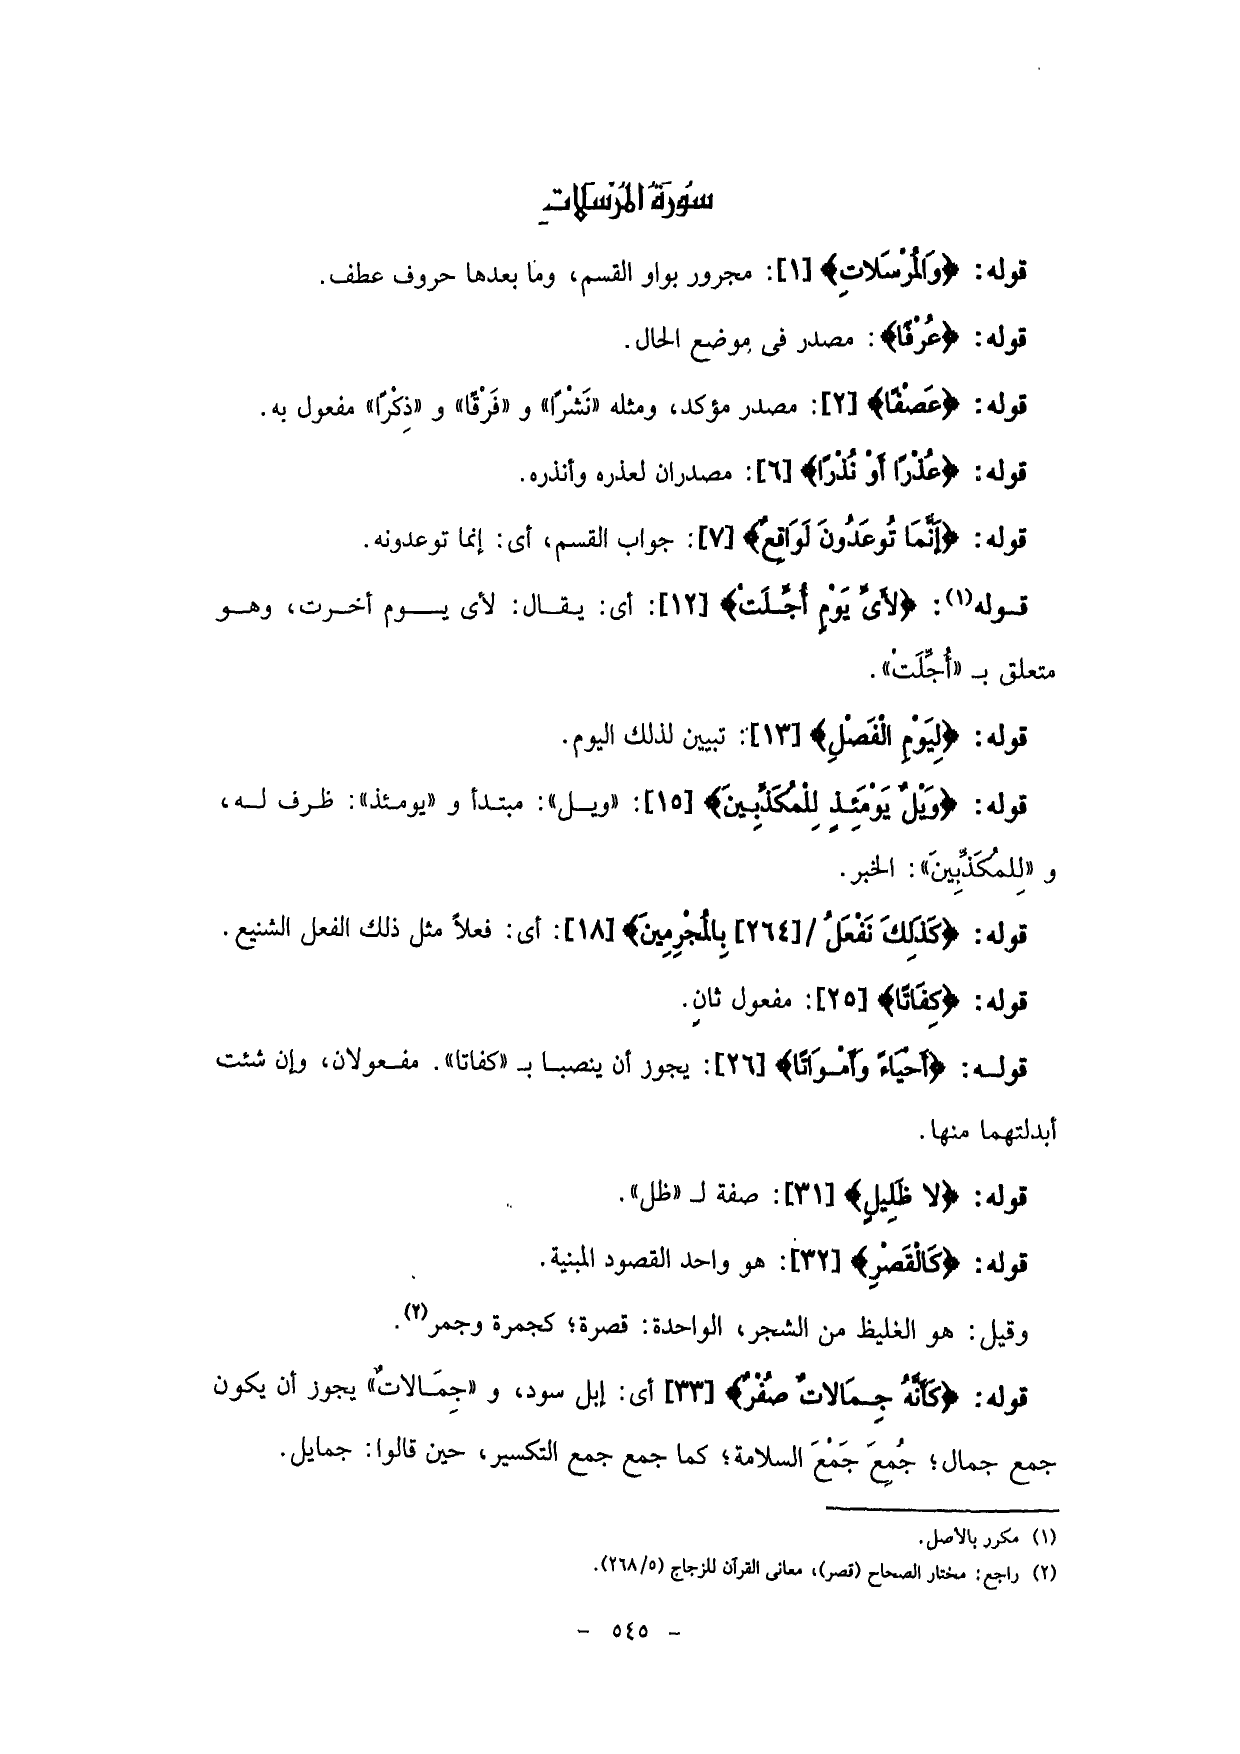 سُورَةُ المُرْسَلاتِ
قوله: ﴿وَالْمُرْسَلاتِ﴾ [١]: مجرور بواو القسم، وما بعدها حروف عطف.
قوله: ﴿عُرْفًا﴾: مصدر فى موضع الحال.
قوله: ﴿عَصْفًا﴾ [٢]: مصدر مؤكد، ومثله «نَشْرًا» و «فَرْقًا» و «ذِكْرًا» مفعول به.
قوله: ﴿عُذْرًا أَوْ نُذْرًا﴾ [٦]: مصدران لعذره وأنذره.
قوله: ﴿إِنَّمَا تُوعَدُونَ لَوَاقِعٌ﴾ [٧]: جواب القسم، أى: إنما توعدونه.
قوله(١): ﴿لأَىِّ يَوْمٍ أُجِّلَتْ﴾ [١٢]: أى: يقال: لأى يوم أخرت، وهو
متعلق بـ «أُجِّلَتْ».
قوله: ﴿لِيَوْمِ الْفَصْلِ﴾ [١٣]: تبيين لذلك اليوم.
قوله: ﴿وَيْلٌ يَوْمَئِذٍ لِلْمُكَذِّبِينَ﴾ [١٥]: «ويل»: مبتدأ و «يومئذ»: ظرف له،
و «لِلمُكَذِّبِينَ»: الخبر.
قوله: ﴿كَذَلِكَ نَفْعَلُ /[٢٦٤] بِالْمُجْرِمِينَ﴾ [١٨]: أى: فعلاً مثل ذلك الفعل الشنيع.
قوله: ﴿كِفَاتًا﴾ [٢٥]: مفعول ثانٍ.
قوله: ﴿أَحْيَاءً وَأَمْوَاتًا﴾ [٢٦]: يجوز أن ينصبا بـ «كفاتا». مفعولان، وإن شئت
أبدلتهما منها.
قوله: ﴿لا ظَلِيلٍ﴾ [٣١]: صفة لـ «ظل».
قوله: ﴿كَالْقَصْرِ﴾ [٣٢]: هو واحد القصود المبنية.
وقيل: هو الغليظ من الشجر، الواحدة: قصرة؛ كجمرة وجمر(٢).
قوله: ﴿كَأَنَّهُ جِمَالاتٌ صُفْرٌ﴾ [٣٣] أى: إبل سود، و «جِمَالاتٌ» يجوز أن يكون
جمع جمال؛ جُمِعَ جَمْعَ السلامة؛ كما جمع جمع التكسير، حين قالوا: جمايل.
(١) مكرر بالأصل.
(٢) راجع: مختار الصحاح (قصر)، معانى القرآن للزجاج (٢٦٨/٥).
- ٥٤٥ -